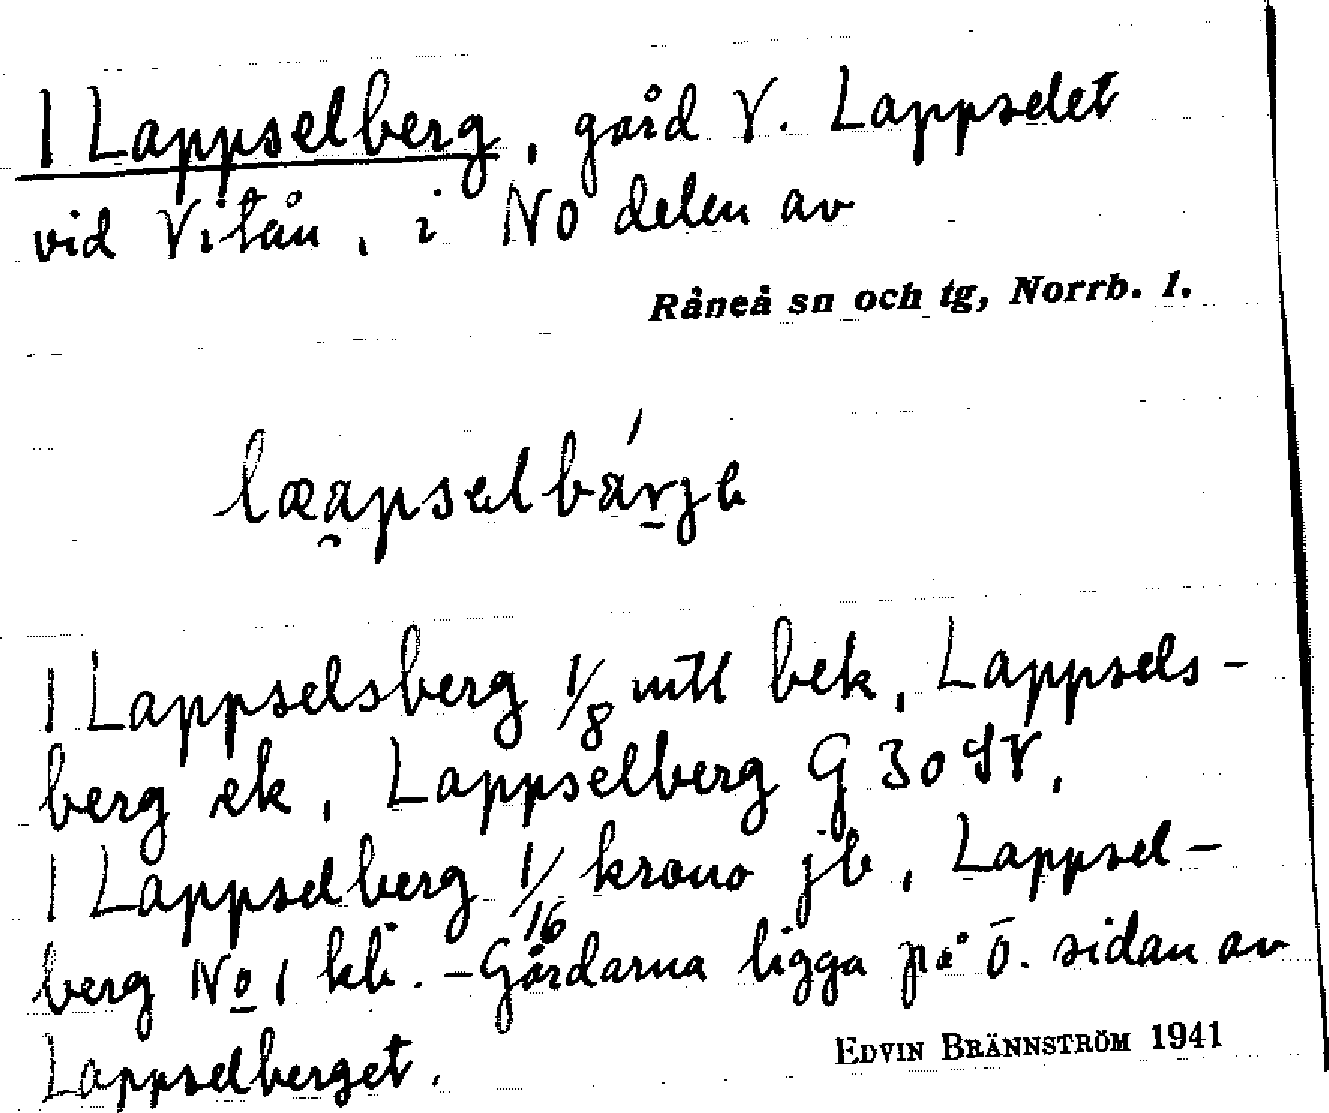 1 Lappselberg, gård V. Lappselet
vid Vitån, i NO delen av
Råneå sn och tg, Norrb. l.
1 Lappselsberg 1/8 mtl bek, Lappsels-
berg ek, Lappselberg G 30 SV,
1 Lappselberg 1/16 krono jb, Lappsel-
berg No 1 kb. - Gårdarna ligga på Ö. sidan av
Lappselberget.
EDVIN BRÄNNSTRÖM 1941